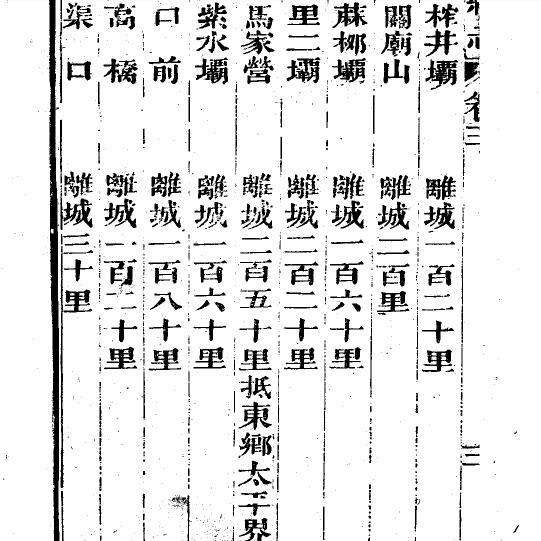 卷三
三
榨井壩 離城一百二十里
關廟山 離城二百里
蔴柳壩 離城一百六十里
里二壩 離城二百二十里
馬家營 離城二百五十里抵東鄉太平界
紫水壩 離城一百六十里
口前 離城一百八十里
高橋 離城一百二十里
渠口 離城三十里